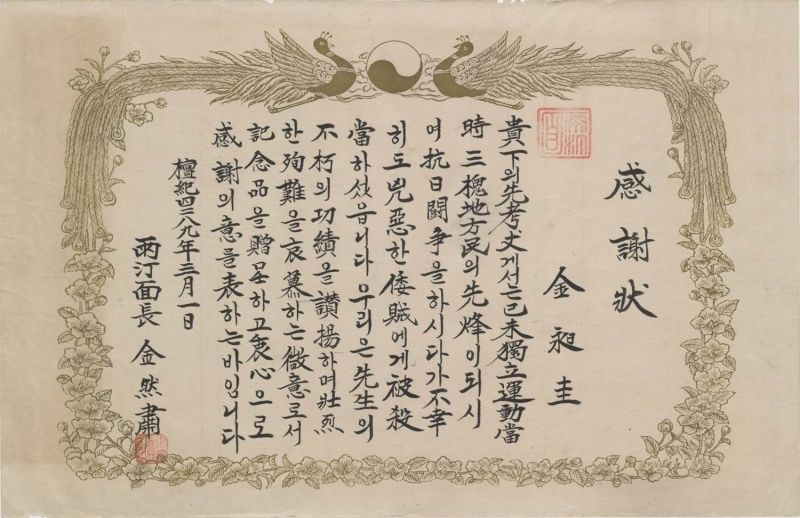 感謝狀
金昶圭
貴下의先考丈게서는己未獨立運動當
時三槐地方民의先烽이되시
여抗日闘争을하시다가不幸
히도兇惡한倭賊에게被殺
當하섯읍니다우리은先生의
不朽의功績을讃揚하며壯烈
한殉難을哀慕하는微意로서
記念品을贈呈하고衷心으로
感謝의意를表하는바임니다
檀紀四二八九年三月一日
雨汀面長 金然肅